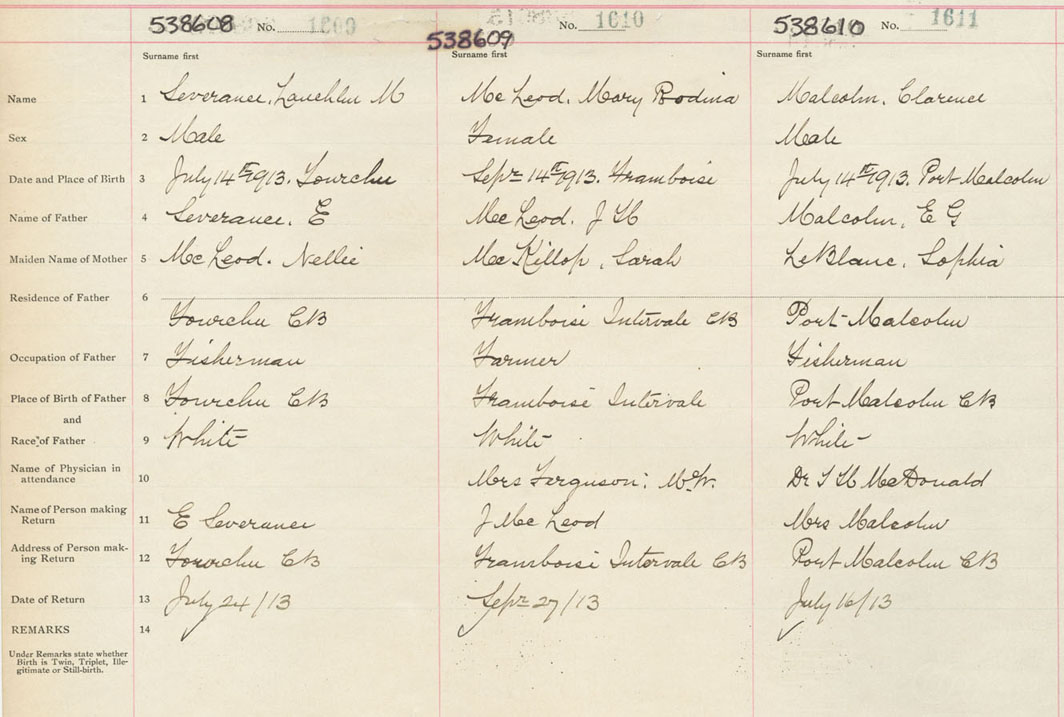 538608 No. 1609 538609 No. 1610 538610 No. 1611
Surname first Surname first Surname first
Name 1 Severance, Lauchlin M McLeod. Mary Rodina Malcolm, Clarence
Sex 2 Male Female Male
Date and Place of Birth 3 July 14th 1913. Fourchu Sepr 14th 1913. Framboise July 14th 1913. Port Malcolm
Name of Father 4 Severance, E McLeod. J H Malcolm, E G
Maiden Name of Mother 5 McLeod. Nellie McKillop, Sarah LeBlanc, Sophia
Residence of Father 6
Fourchu CB Framboise Intervale CB Port Malcolm
Occupation of Father 7 Fisherman Farmer Fisherman
Place of Birth of Father 8 Fourchu CB Framboise Intervale Port Malcolm CB
and
Race of Father 9 White White White
Name of Physician in
attendance 10 Mrs Ferguson; M.W. Dr I H McDonald
Name of Person making
Return 11 E Severance J McLeod Mrs Malcolm
Address of Person mak-
ing Return 12 Fourchu CB Framboise Intervale CB Port Malcolm CB
Date of Return 13 July 24/13 Sepr 27/13 July 16/13
REMARKS 14
Under Remarks state whether
Birth is Twin, Triplet, Ille-
gitimate or Still-birth.